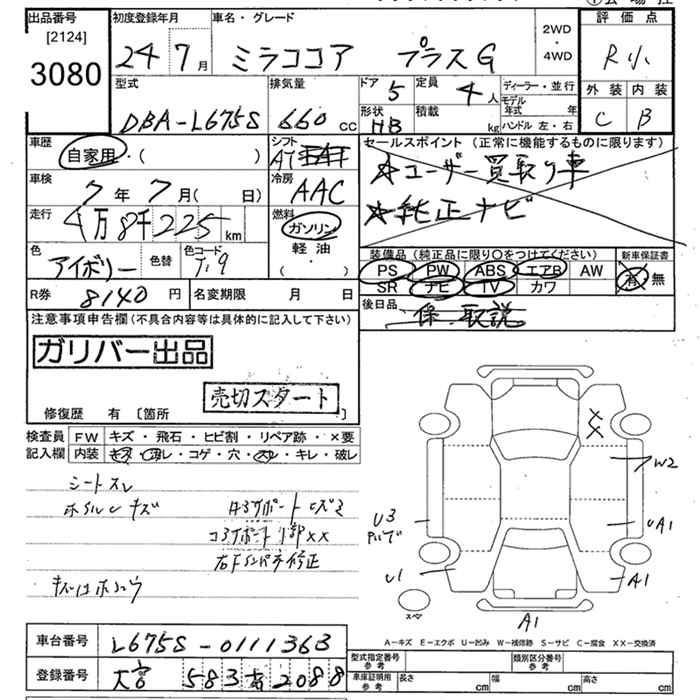 出品番号
[2124]
3080
初度登録年月
24年7月
車名・グレード
ミラココア プラスG
2WD
・
4WD
評価点
R
外装 内装
C B
型式
DBA-L675S
排気量
660 cc
ドア 5
定員 4人
形状 HB
積載 kg
ディーラー・並行
モデル年式 年
ハンドル 左・右
車歴
自家用・( )
シフト
AT
車検
7年7月( 日)
冷房
AAC
走行
4万8千225km
燃料
ガソリン
軽・油
・( )
色
アイボリー
色替
色コード
T19
R券 8140円
名変期限 月 日
セールスポイント (正常に機能するものに限ります)
☆ユーザー買取り車
☆純正ナビ
装備品(純正品に限り〇をつけてください)
PS PW ABS エアB AW
SR ナビ TV カワ
新車保証書
有・無
後日品
保 取説
注意事項申告欄(不具合内容等は具体的に記入して下さい)
ガリバー出品
売切スタート
修復歴 有 〔箇所 〕
検査員
記入欄
FW キズ・飛石・ヒビ割・リペア跡・×要
内装 キズ・汚レ・コゲ・穴・スレ・キレ・破レ
シートスレ
キズ
XX
修正
XX
W2
U3
UA1
U1
A1
A1
A-キズ E-エクボ U-凹み W-補修跡 S-サビ C-腐食 XX-交換済
車台番号 L675S-0111363
登録番号 大宮 583 2088
型式指定番号
参考
類別区分番号
参考
車庫証明用
参考
長さ cm
幅 cm
高さ cm